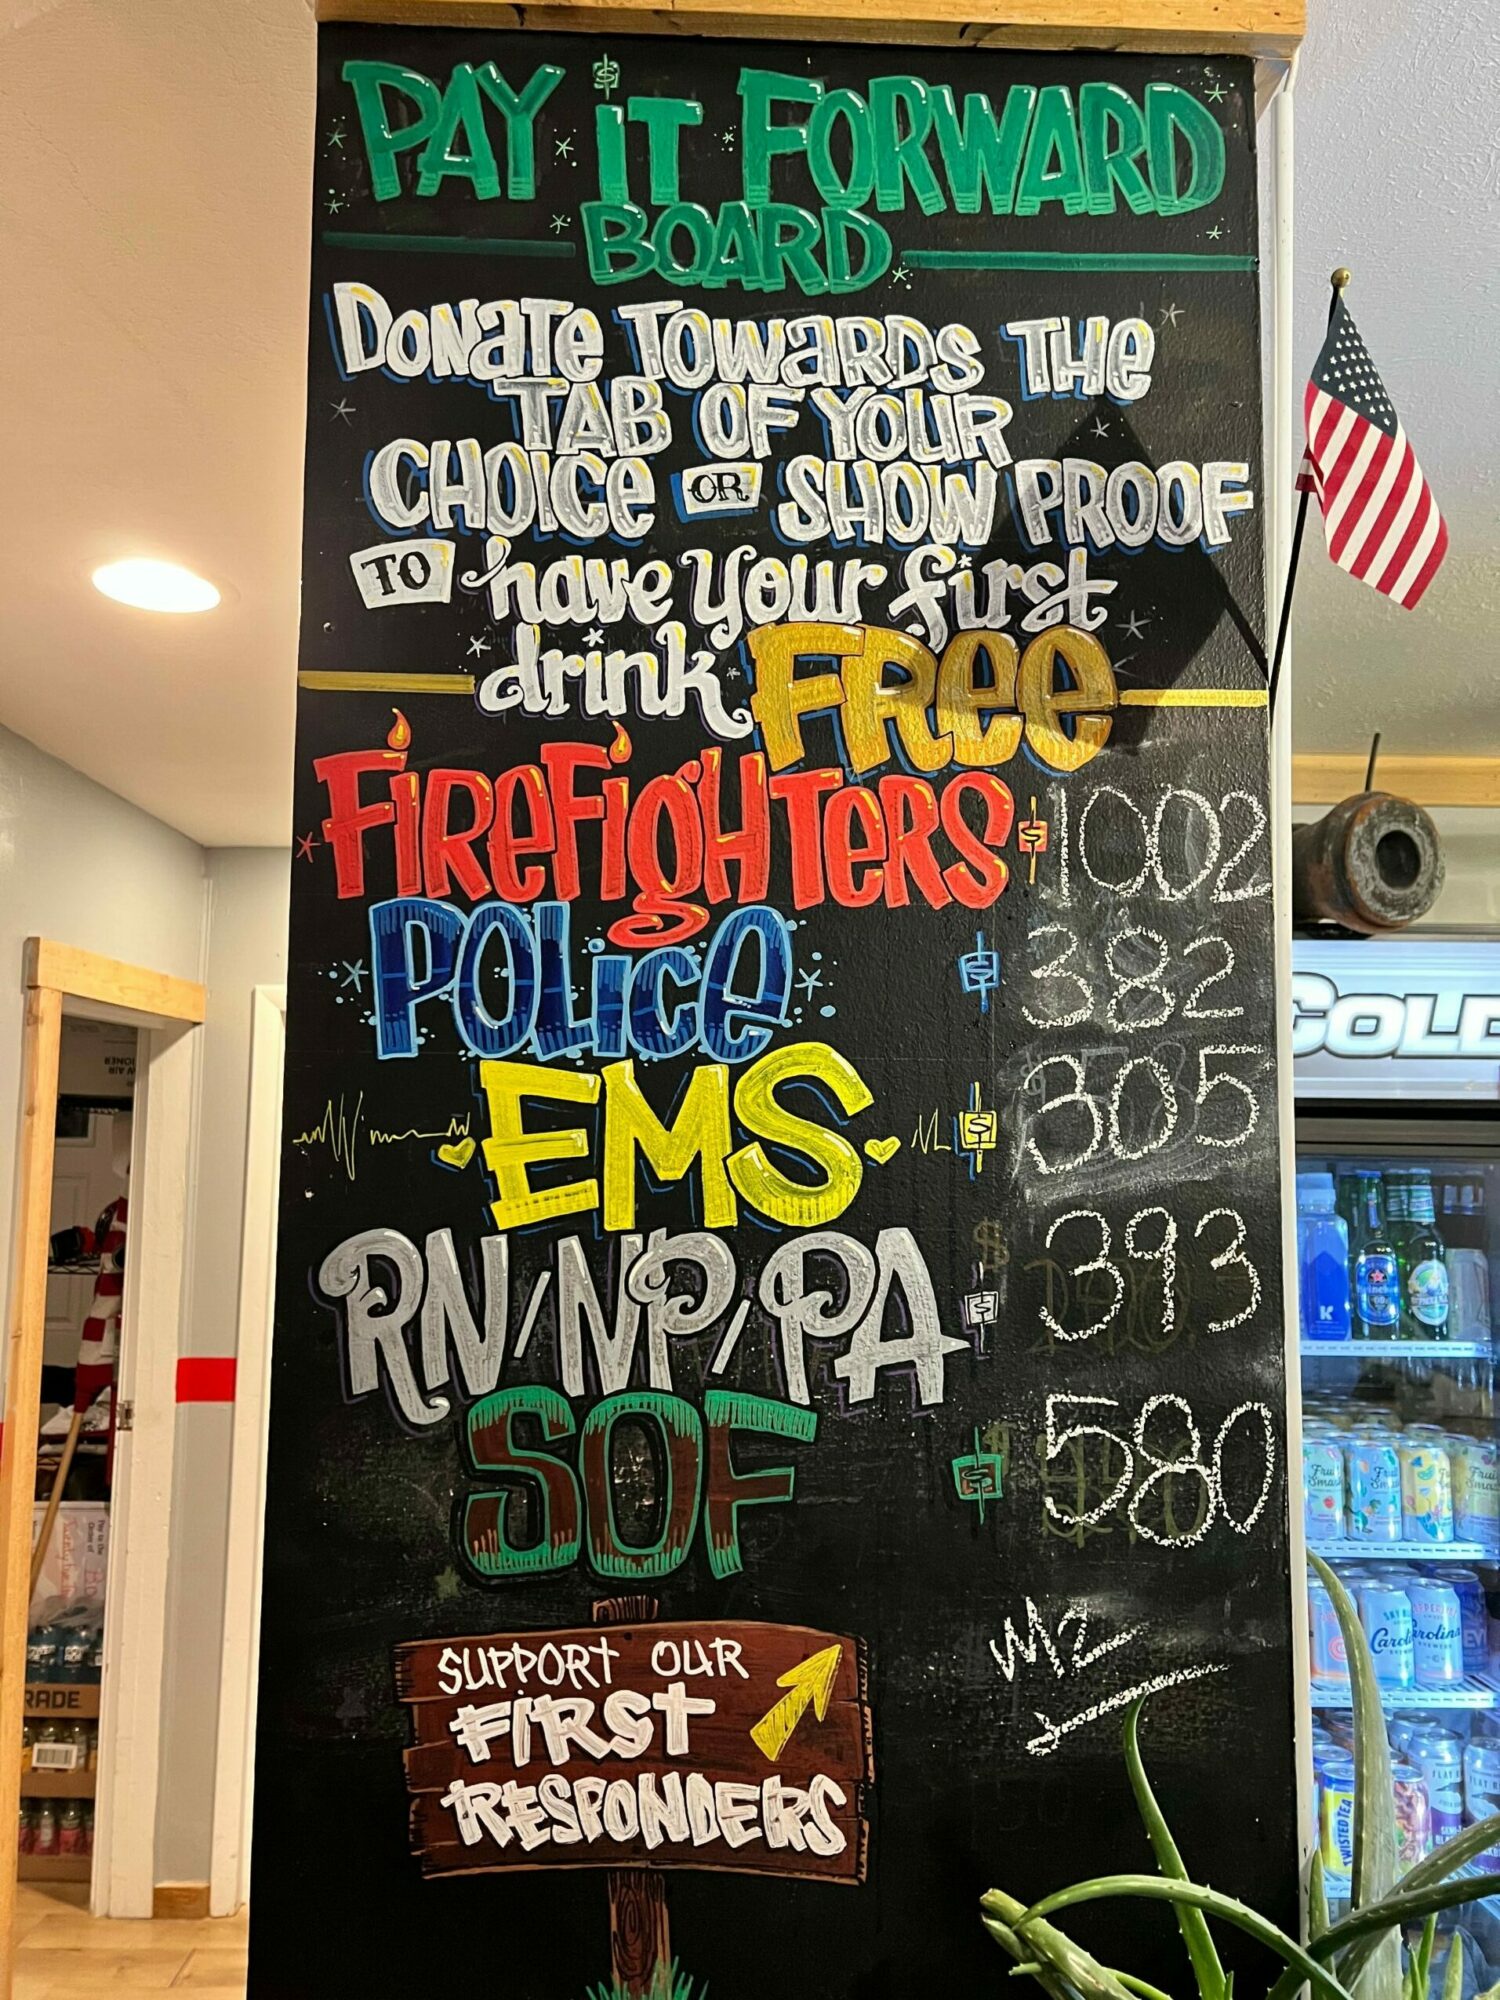 PAY IT FORWARD
BOARD
DONATE TOWARDS THE
TAB OF YOUR
CHOICE OR SHOW PROOF
TO have your first
drink FREE
FIREFIGHTERS $ 1002
POLICE $ 382
EMS $ 305
RN/NP/PA $ 393
SOF $ 580
M2
SUPPORT OUR
FIRST
RESPONDERS
COLD
TWISTED TEA
RADE